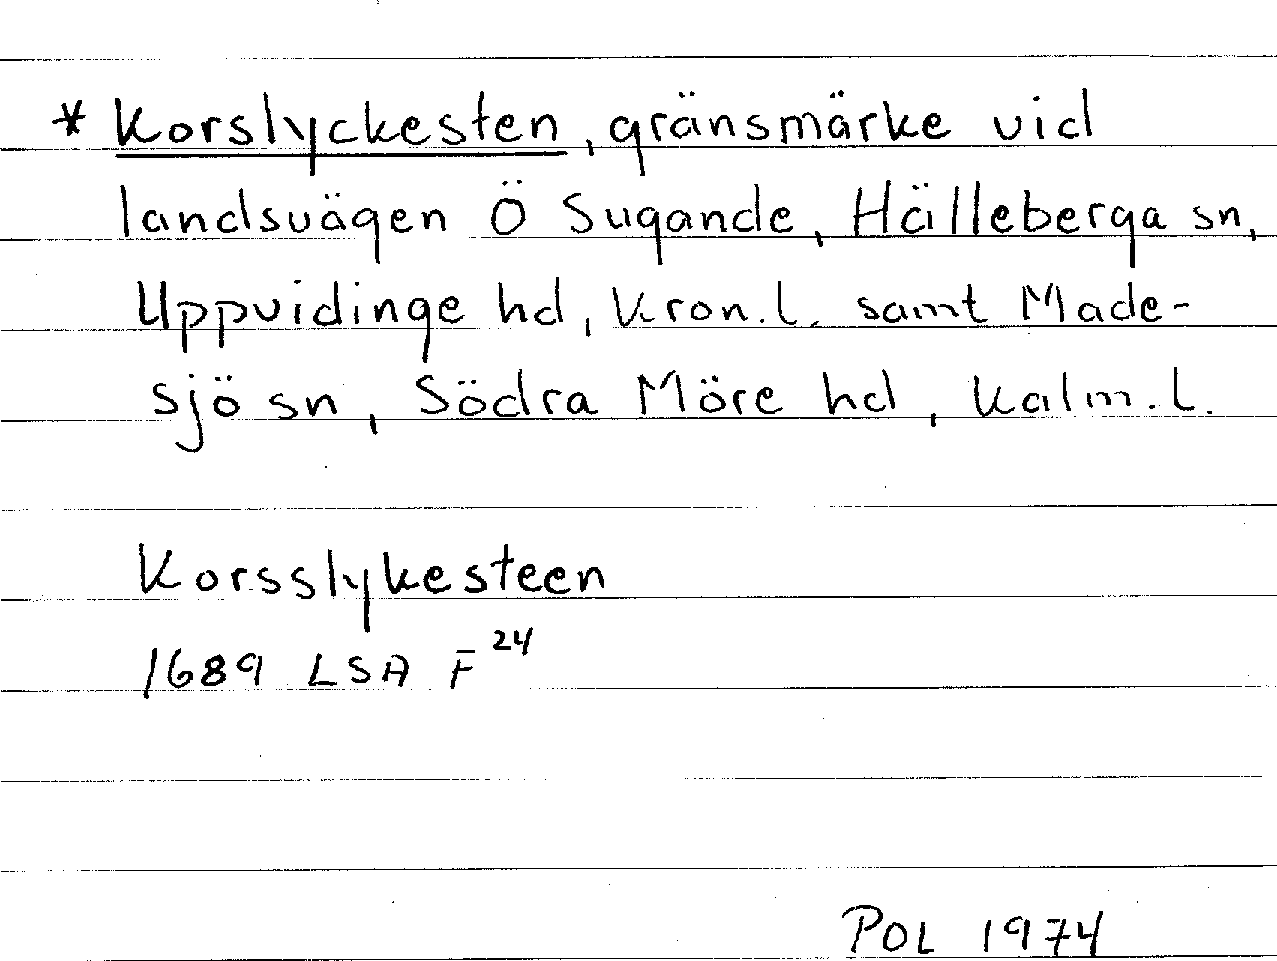 * Korslyckesten, gränsmärke vid
landsvägen Ö Sugande, Hälleberga sn,
Uppvidinge hd, Kron.l. samt Made-
sjö sn, Södra Möre hd, Kalm.l.
Korsslykesteen
1689 LSA F 24
POL 1974